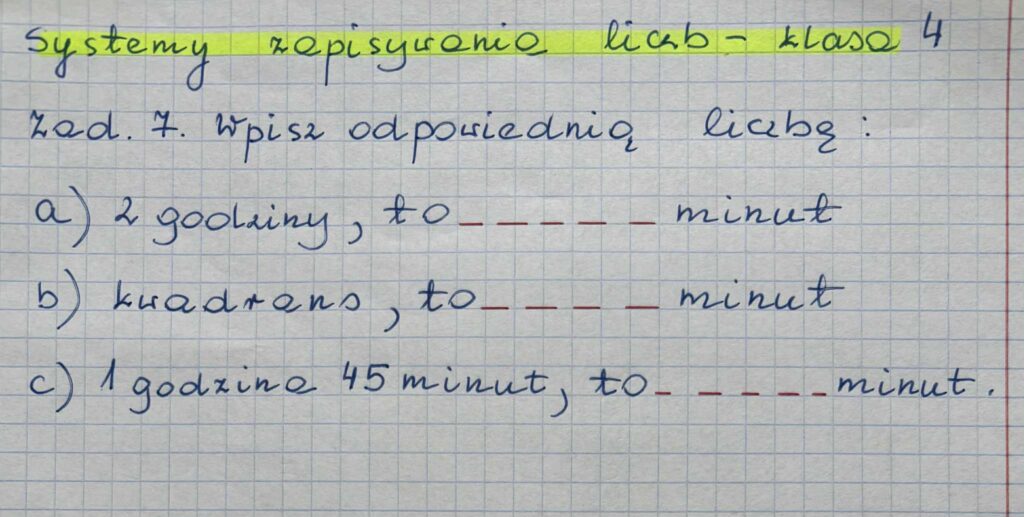 Systemy zapisywania liczb - klasa 4
Zad. 7. Wpisz odpowiednią liczbę:
a) 2 godziny, to _ _ _ _ _ minut
b) kwadrans, to _ _ _ _ minut
c) 1 godzina 45 minut, to _ _ _ _ _ minut.